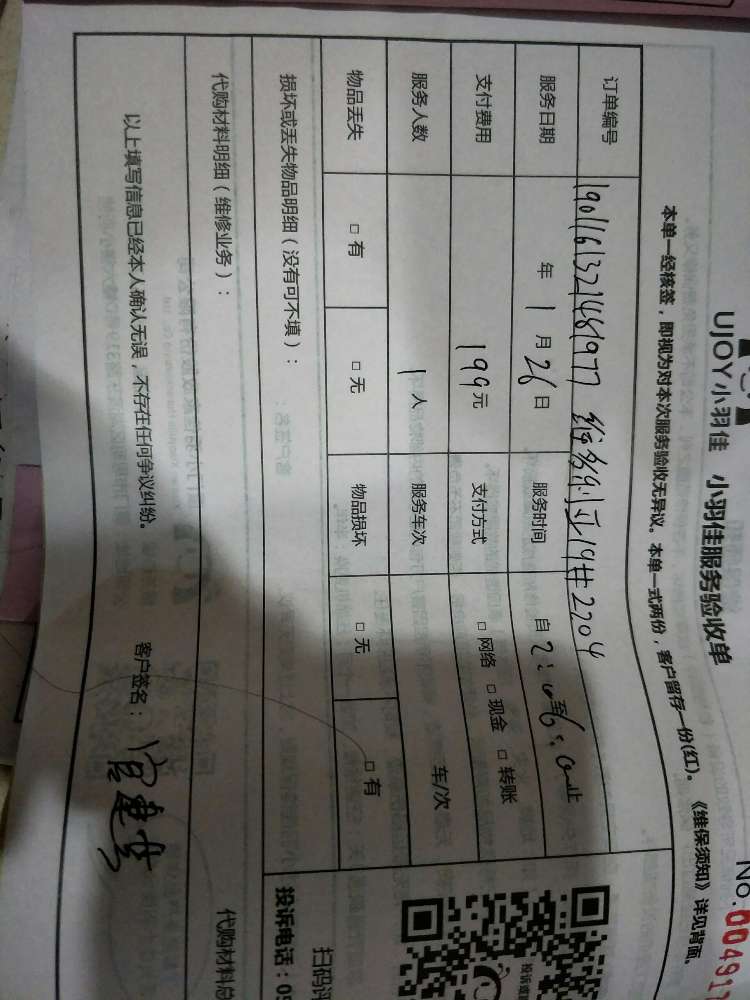 No.004917
UJOY小羽佳 小羽佳服务验收单
本单一经核签，即视为对本次服务验收无异议。本单一式两份，客户留存一份(红)。《维保须知》详见背面。
订单编号 1901161321481977 19#2204
服务日期 年 1 月 26 日 服务时间 自 2:00 至 6:00 止
支付费用 199元 支付方式 □ 网络 □ 现金 □ 转账
服务人数 1 人 服务车次 车/次
物品丢失 □ 有 □ 无 物品损坏 □ 无 □ 有
损坏或丢失物品明细（没有可不填）：
代购材料明细（维修业务）： 代购材料总
以上填写信息已经本人确认无误，不存在任何争议纠纷。 客户签名：
投诉或
扫码评
投诉电话：05